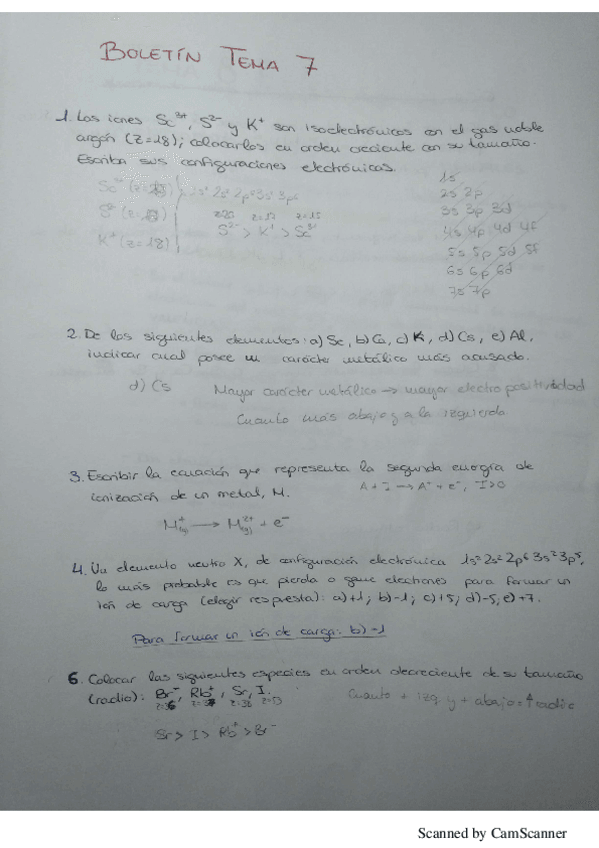 BOLETÍN TEMA 7
1. Los iones Sc³⁺, S²⁻ y K⁺ son isoelectrónicos con el gas noble
argón (Z=18); colocarlos en orden creciente con su tamaño.
Escriba sus configuraciones electrónicas.
1s
2s 2p
3s 3p 3d
4s 4p 4d 4f
5s 5p 5d 5f
6s 6p 6d
7s 7p
1s² 2s² 2p⁶ 3s² 3p⁶
K⁺ (z=18)
S²⁻ > K⁺ > Sc³⁺
2. De los siguientes elementos: a) Sc, b) Ca, c) K, d) Cs, e) Al,
indicar cual posee un carácter metálico más acusado.
d) Cs Mayor carácter metálico → mayor electropositividad
Cuanto más abajo y a la izquierda
3. Escribir la ecuación que representa la segunda energía de
ionización de un metal, M. A + I → A⁺ + e⁻, I>0
M⁺(g) → M²⁺(g) + e⁻
4. Un elemento neutro X, de configuración electrónica 1s² 2s² 2p⁶ 3s² 3p⁵,
lo más probable es que pierda o gane electrones para formar un
ión de carga (elegir respuesta): a) +1; b) -1; c) +5; d) -5; e) +7.
Para formar un ión de carga: b) -1
6. Colocar las siguientes especies en orden decreciente de su tamaño
(radio): Br⁻, Rb⁺, Sr, I. Cuanto + izq. y + abajo = ↑ radio
Sr > I > Rb⁺ > Br⁻
Scanned by CamScanner